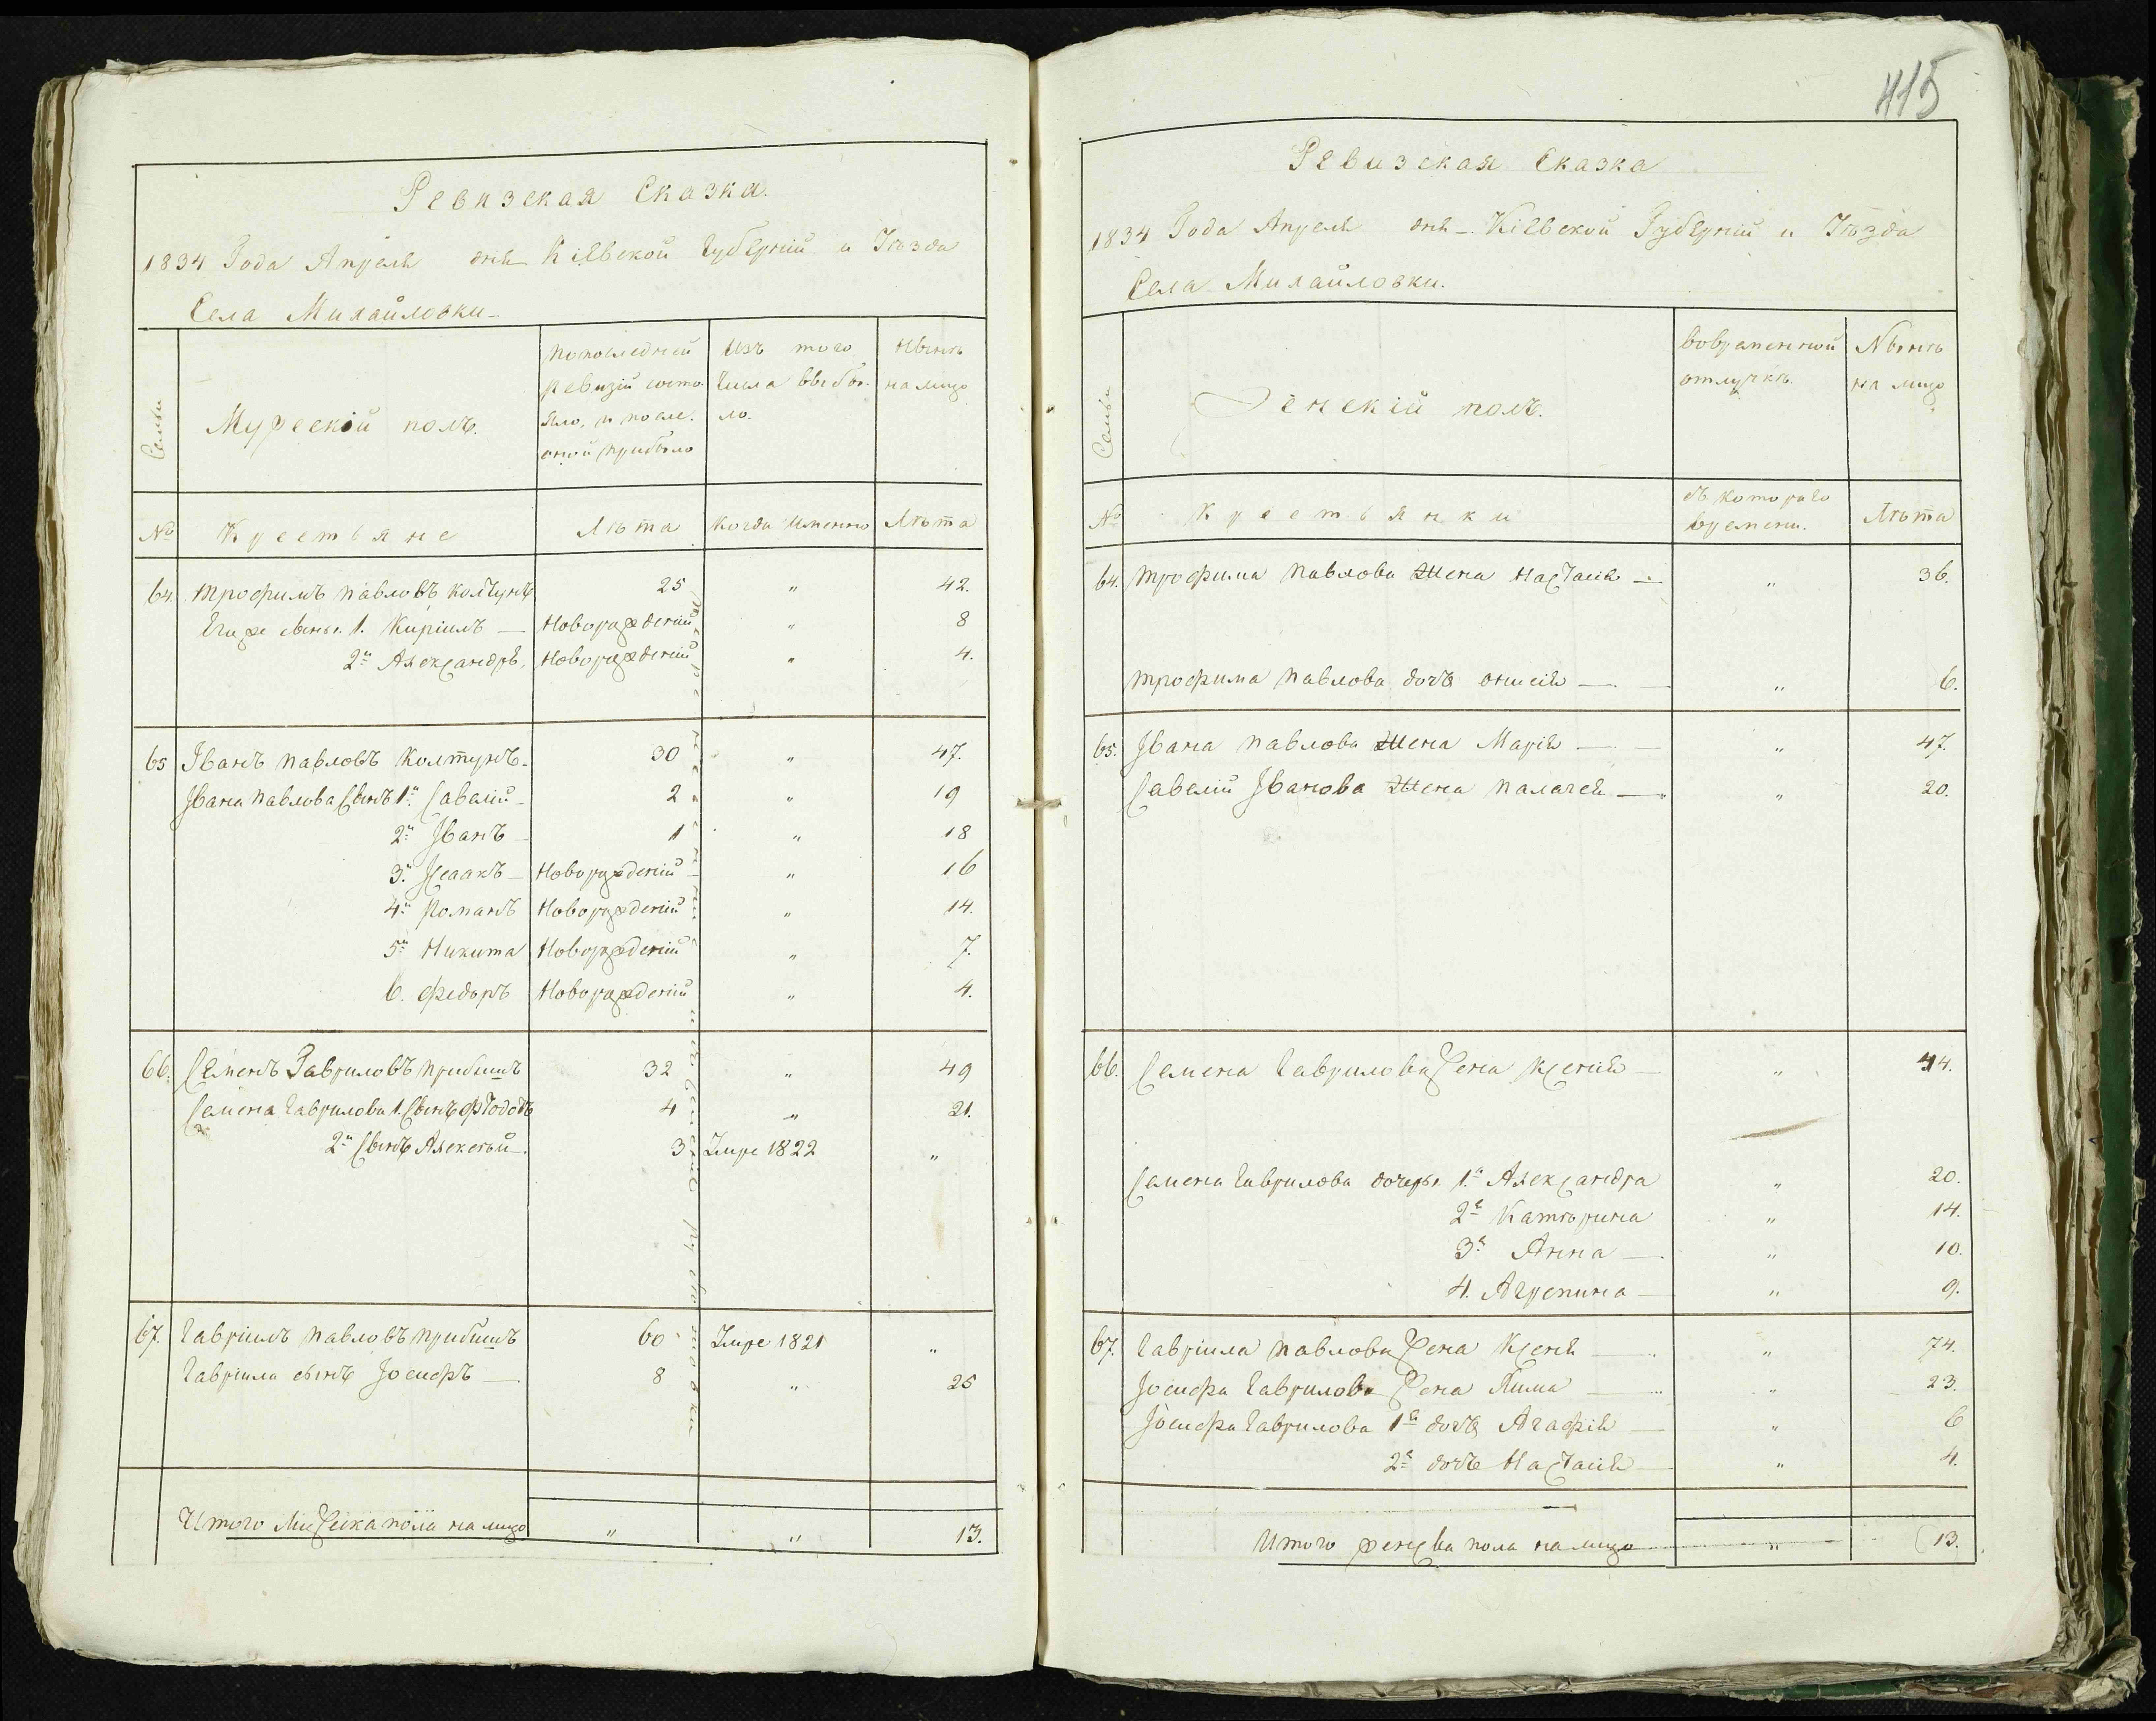 415
Ревизская Сказка.
1834 Года Апреля дня Кіевской Губерніи и Уѣзда
Села Михайловки
Семьи
Мужескій полъ.
По последней ревизіи состояло, и после оной прибыло
Изъ того числа выбыло.
Нынѣ на лицо
№ Крестьяне Лѣта Когда именно Лѣта
64. Трофимъ Павловъ Колтунъ 25 " 42.
Его же сыны. 1. Киріилъ — Новорожденій " 8
2й Александръ, Новорожденій " 4.
65 Іванъ Павловъ Колтунъ. 30 " 47.
Івана Павлова Сынъ 1й Савелій 2 " 19
2й Іванъ 1 " 18
3й Ісаакъ Новорожденій " 16
4й Романъ Новорожденій " 14.
5й Никита Новорожденій " 7.
6. Федоръ Новорожденій " 4.
66. Семенъ Гавриловъ Прибишъ 32 " 49
Семена Гаврилова 1. Сынъ Федотъ 4 " 21.
2й Сынъ Алексѣй 3 Умре 1822 "
67. Гавріилъ Павловъ Прибишъ 60 Умре 1821 "
Гавріила сынъ Іосифъ — 8 " 25
Итого Мужеска пола на лицо " " 13.
Ревизская Сказка
1834 Года Апреля дня — Кіевской Губерніи и Уѣзда
Села Михайловки.
Семьи
Женскій полъ.
Вовременной отлучкѣ.
Нынѣ на лицо
№ Крестьянки съ котораго времени. Лѣта
64. Трофима Павлова Жена Настасія — " 36.
Трофима Павлова дочь Онисія — " 6.
65. Івана Павлова Жена Марія — " 47.
Савелій Іванова Жена Палагея — " 20.
66. Семена Гаврилова Жена Ксенія — " 44.
Семена Гаврилова дочеры 1я Александра " 20.
2я Катѣрина " 14.
3я Анна — " 10.
4. Агрепина — " 9.
67. Гавріила Павлова Жена Ксеня — " 74.
Іосифа Гаврилова Жена — " 23.
Іосифа Гаврилова 1я дочь Агафія — " 6
2я дочь Настасія — " 4.
Итого женска пола на лицо " 13.